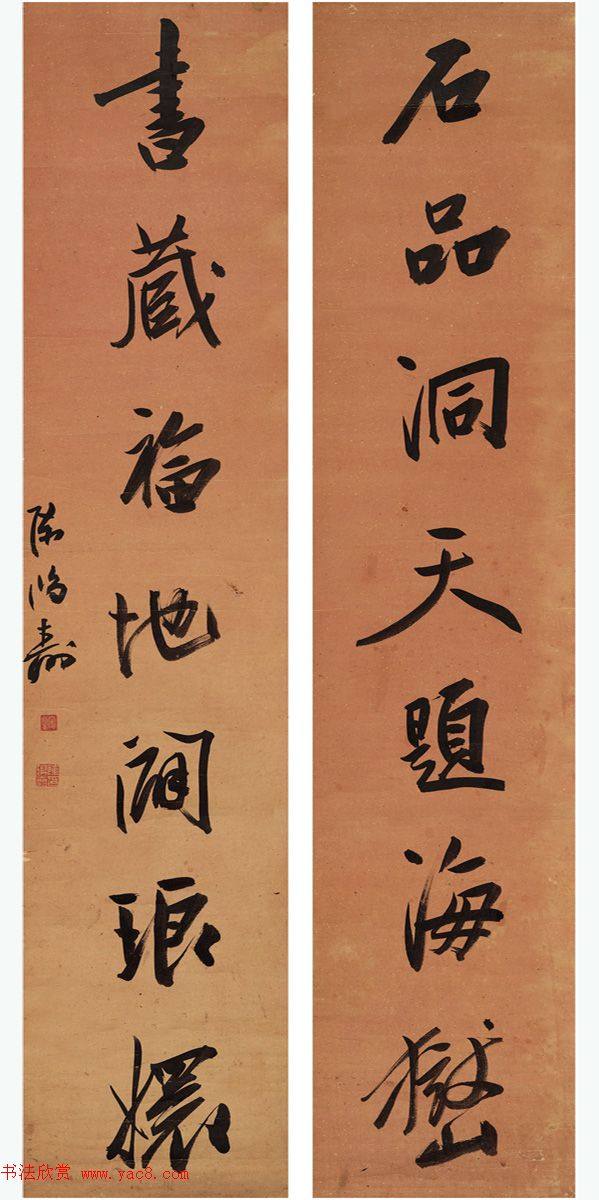 石品洞天題海嶽
書藏福地闢琅嬛
陳鴻壽
书法欣赏 www.yac8.com